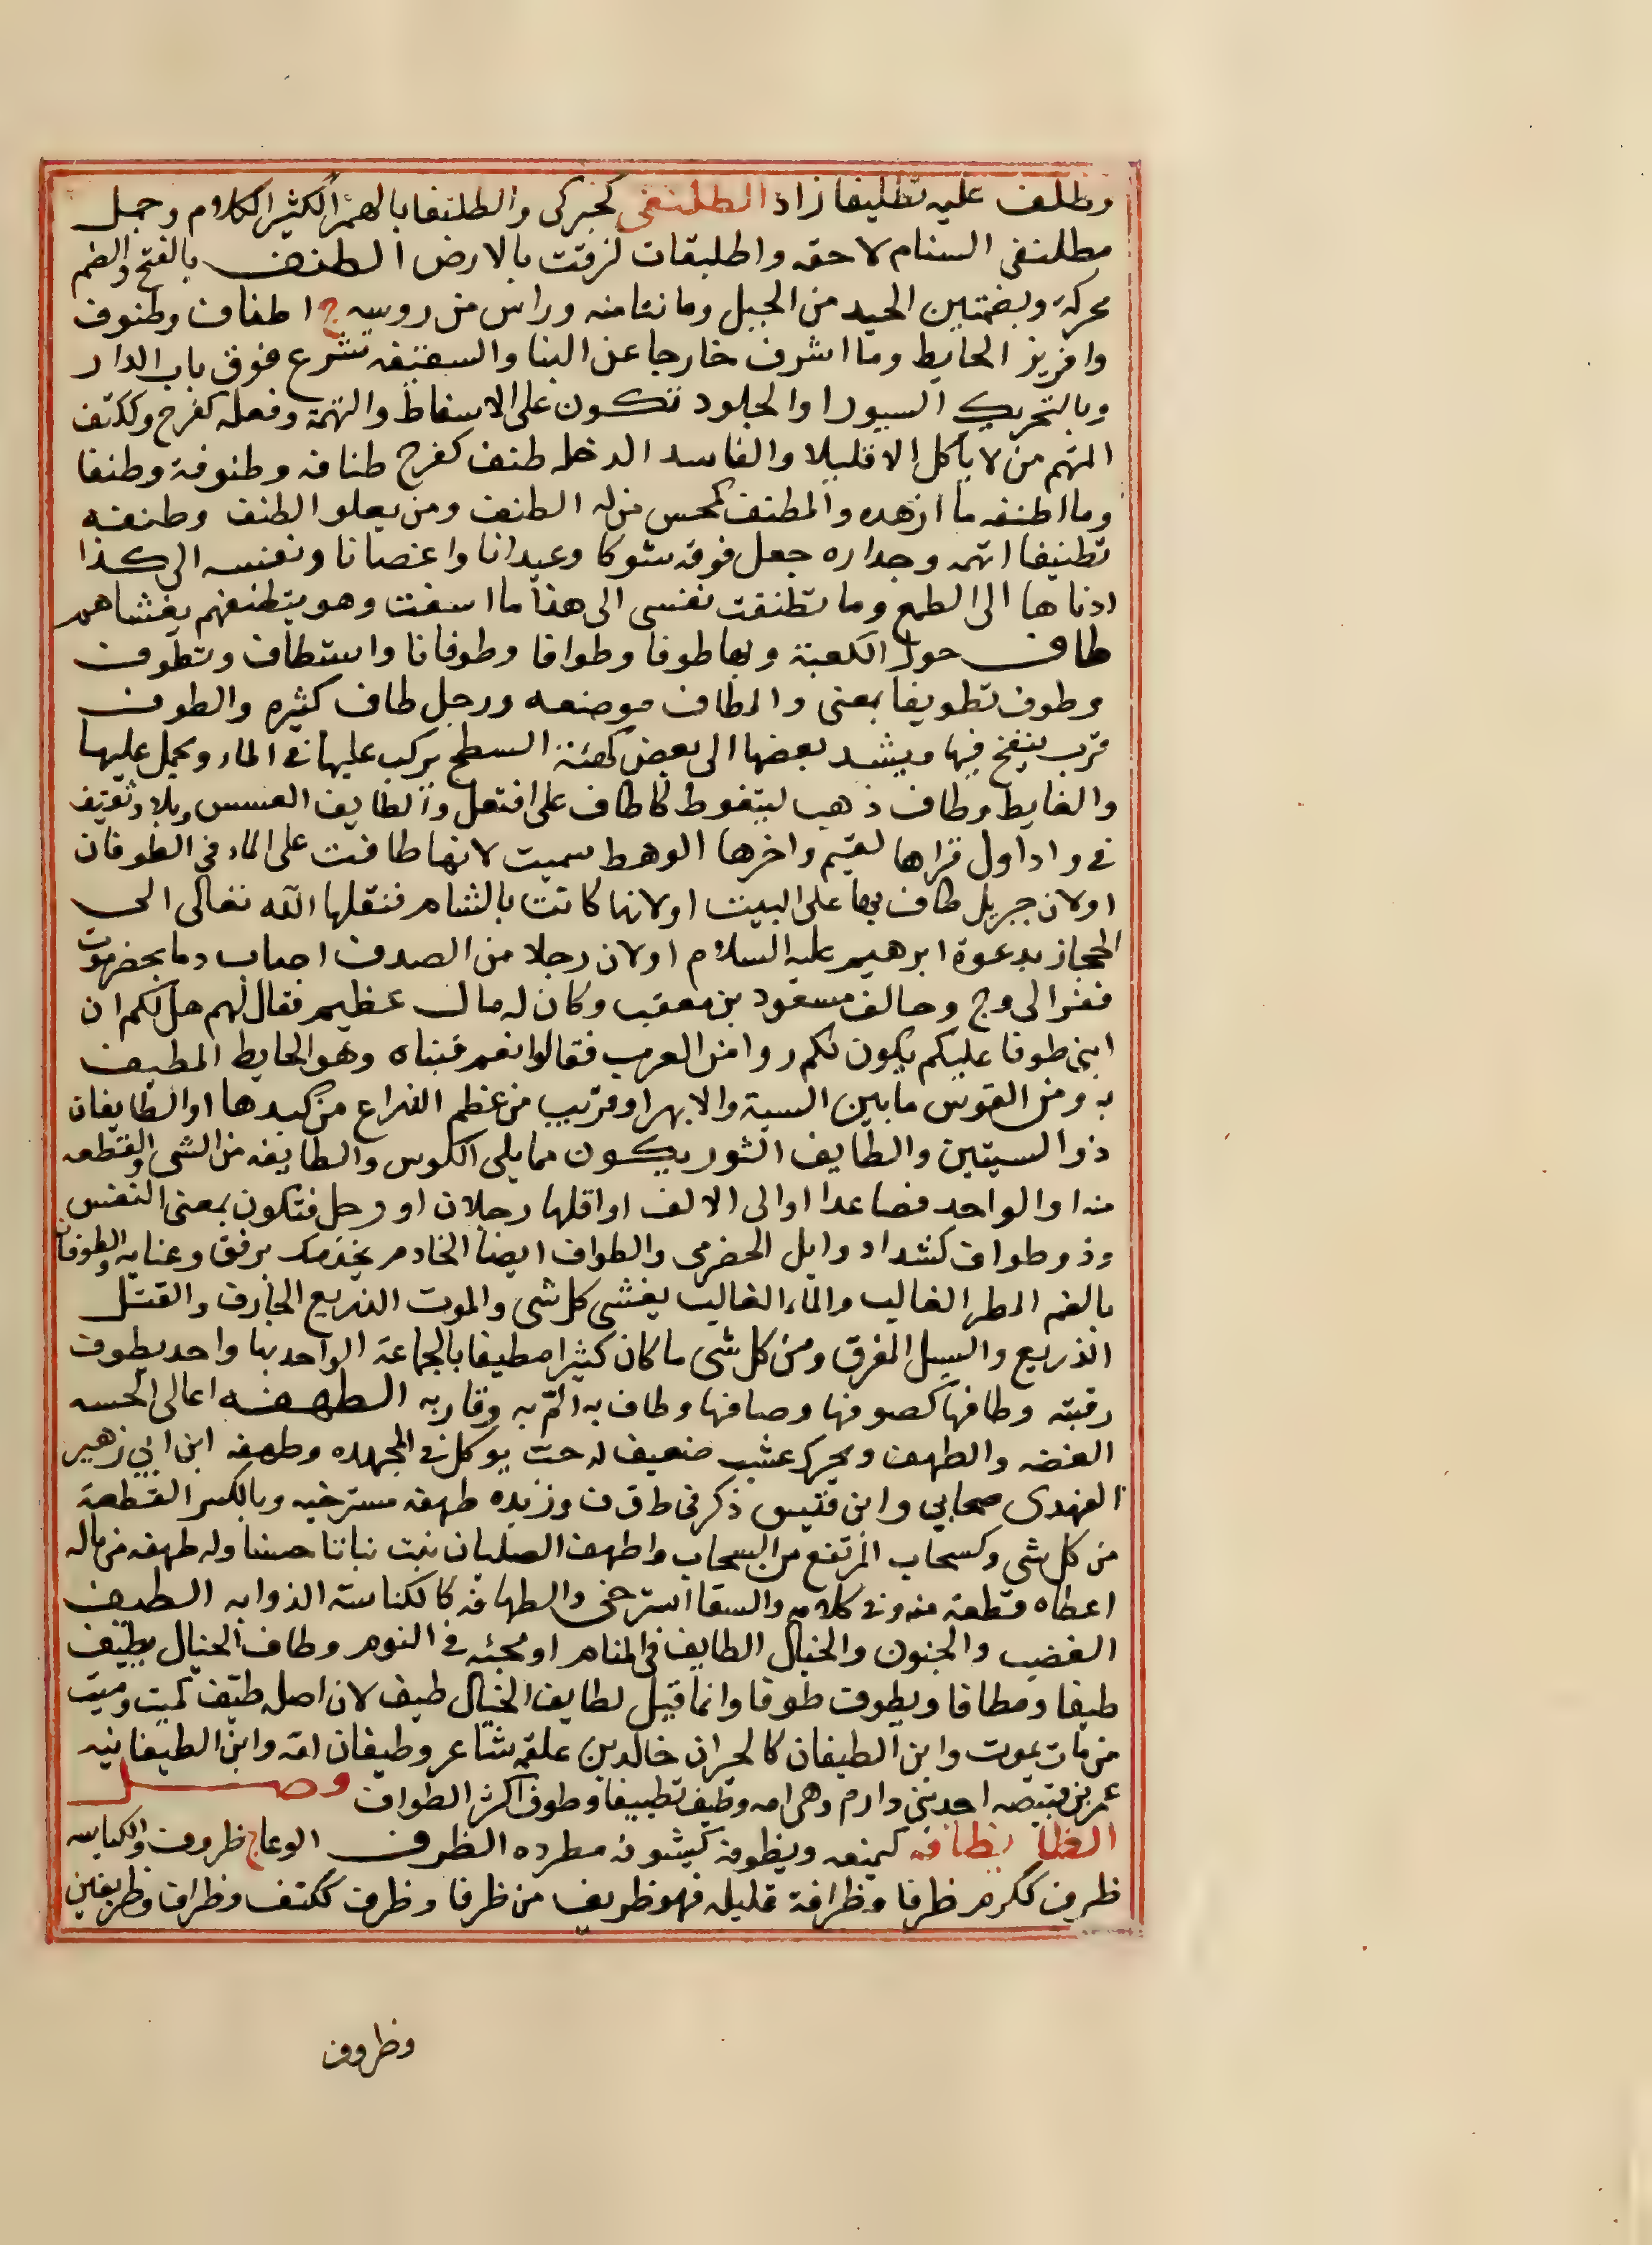 وطلف عليه تطليفا زاد الطلنفى كحبركى والطلنفا بالهمز الكثير الكلام وجمل
مطلنفى السنام لاحقه واطلبقات لزقت بالارض الطنف بالفتح والضم
محركة وبضمتين الحيد من الجبل وما نتا منه وراس من روسه ج اطناف وطنوف
وافريز الحايط وما اشرف خارجا عن البنا والسقيفه تشرع فوق باب الدار
وبالتحريك السيور او الجلود تكون على الاسفاط والتهمة وفعله كفرح وككتف
المتهم من لا ياكل الا قليلا والفاسد الدخله طنف كفرح طنافه وطنوفة وطنفا
وما اطنفه ما ازهده والمطنف كمحسن من له الطنف ومن يعلو الطنف وطنفه
تطنيفا اتهمه وجداره جعل فوقه شوكا وعيدانا واغصانا ونفسه الى كذا
ادناها الى الطمع وما تطنفت نفسى الى هذا ما اسفت وهو يتطنفهم يغشاهم
طاف حول الكعبة وبها طوفا وطوافا وطوفانا واستطاف وتطوف
وطوف تطويفا بمعنى والمطاف موضعه ورجل طاف كثيره والطوف
قرب ينفخ فيها ويشد بعضها الى بعض كهئة السطح يركب عليها فى الماء ويحمل عليها
والغايط وطاف ذهب ليتغوط كاطاف على افتعل والطايف العسس وبلاد ثقيف
فى واد اول قراها لقيم واخرها الوهط سميت لانها طافت على الماء فى الطوفان
اولان جبريل طاف بها على البيت اولانها كانت بالشام فنقلها الله تعالى الى
الحجاز بدعوة ابرهيم عليه السلام اولان رجلا من الصدف اصاب دما بحضرموت
ففر الى وج وحالف مسعود بن معتب وكان له مال عظيم فقال لهم هل لكم ان
ابنى طوفا عليكم يكون لكم ردا من العرب فقالوا نعم فبناه وهو الحايط المطيف
به ومن القوس ما بين السية والابهر او قريب من عظم الذراع من كبدها او الطايفان
ذو السيتين والطايف الثور يكون مما يلى الكوس والطايفه من الشى والقطعه
منه او الواحد فصاعدا او الى الالف او اقلها رجلان او رجل فتكون بمعنى النفس
وذو طواف كشداد وايل الحضرمى والطواف ايضا الخادم يخدمك برفق وعنايه والطوفان
بالضم المطر الغالب والماء الغالب يغشى كل شى والموت الذريع الجارف والقتل
الذريع والسيل المغرق ومن كل شى ما كان كثيرا مطيفا بالجماعة الواحد بها واحد بطوف
رقبته وطافها كصوفها وصافها وطاف به الم به وقاربه الطهفه اعالى الحسه
الغضه والطهف ويحرك عشب ضعيف له حب يوكل فى المجهده وطهفه ابن ابي زهير
النهدى صحابي وابن قيس ذكر فى ط ق ف وزبده طهفه مسترخيه وبالكسر القطعة
من كل شى وكسحاب المرتفع من السحاب واطهف الصليان نبت نباتا حسنا وله طهفه من ماله
اعطاه قطعة منه وفى كلامه والسقا استرخى والطهافه كالكناسة الذوابه الطيف
الغضب والجنون والخيال الطايف فى المنام او مجئه فى النوم وطاف الخيال يطيف
طيفا ومطافا ويطوف طوفا وانما قيل لطايف الخيال طيف لان اصله طيف كميت وميت
من مات يموت وابن الطيفان كالحيران خالد بن علقمه شاعر وطيفان امه وابن الطيفانيه
عمر بن قبيصه احد بنى دارم وهى امه وطيف تطييفا وطوف اكثر الطواف وصل
الظا يظافه كيمنعه ويظوفه كيشوفه مطرده الظرف الوعا ج ظروف والكياسه
ظرف ككرم ظرفا وظرافة قليله فهو ظريف من ظرفا وظرف ككتف وظراف وظريفين
وظروف